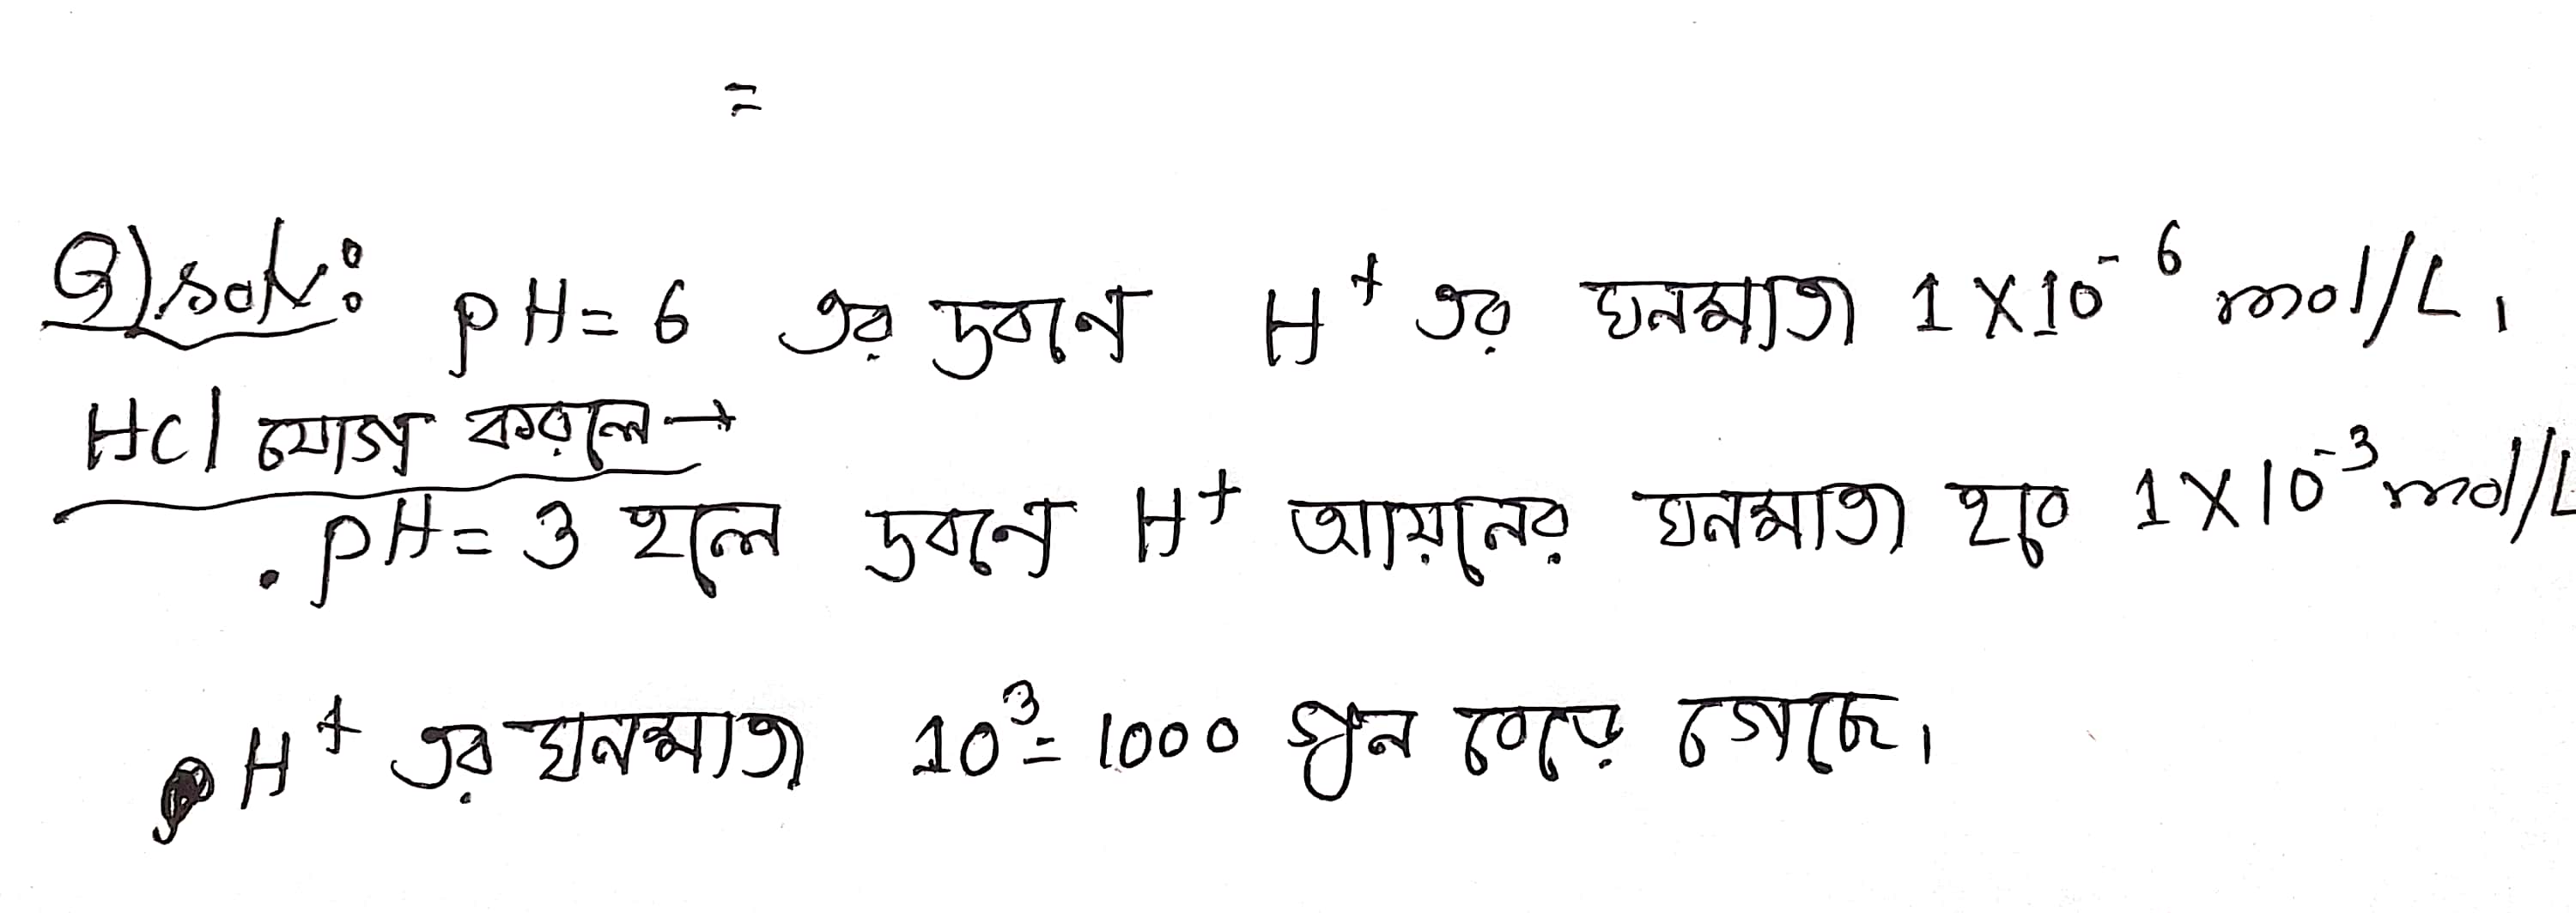 =
২) soln: pH = 6 এর দ্রবনে H⁺ এর ঘনমাত্রা 1 X 10⁻⁶ mol/L,
HCl যোগ করলে→
. pH = 3 হলে দ্রবনে H⁺ আয়নের ঘনমাত্রা হবে 1 X 10⁻³ mol/L
H⁺ এর ঘনমাত্রা 10³ = 1000 গুন বেড়ে গেছে।